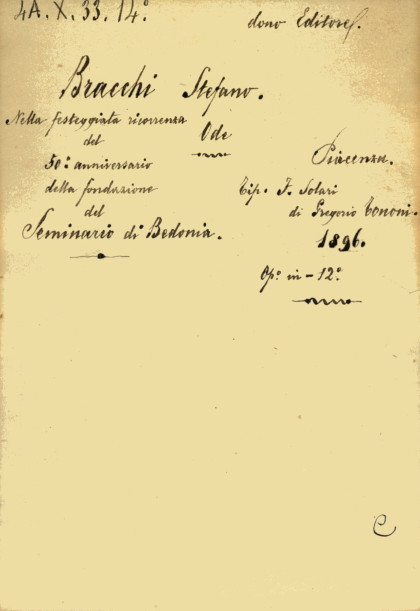 4A.X.33.14°
dono Editore.
Bracchi Stefano.
Nella festeggiata ricorrenza
del
50° anniversario
della fondazione
del
Seminario di Bedonia.
Ode
Piacenza.
Tip. F. Solari
di Gregorio Tononi.
1896.
Op° in-12°
C